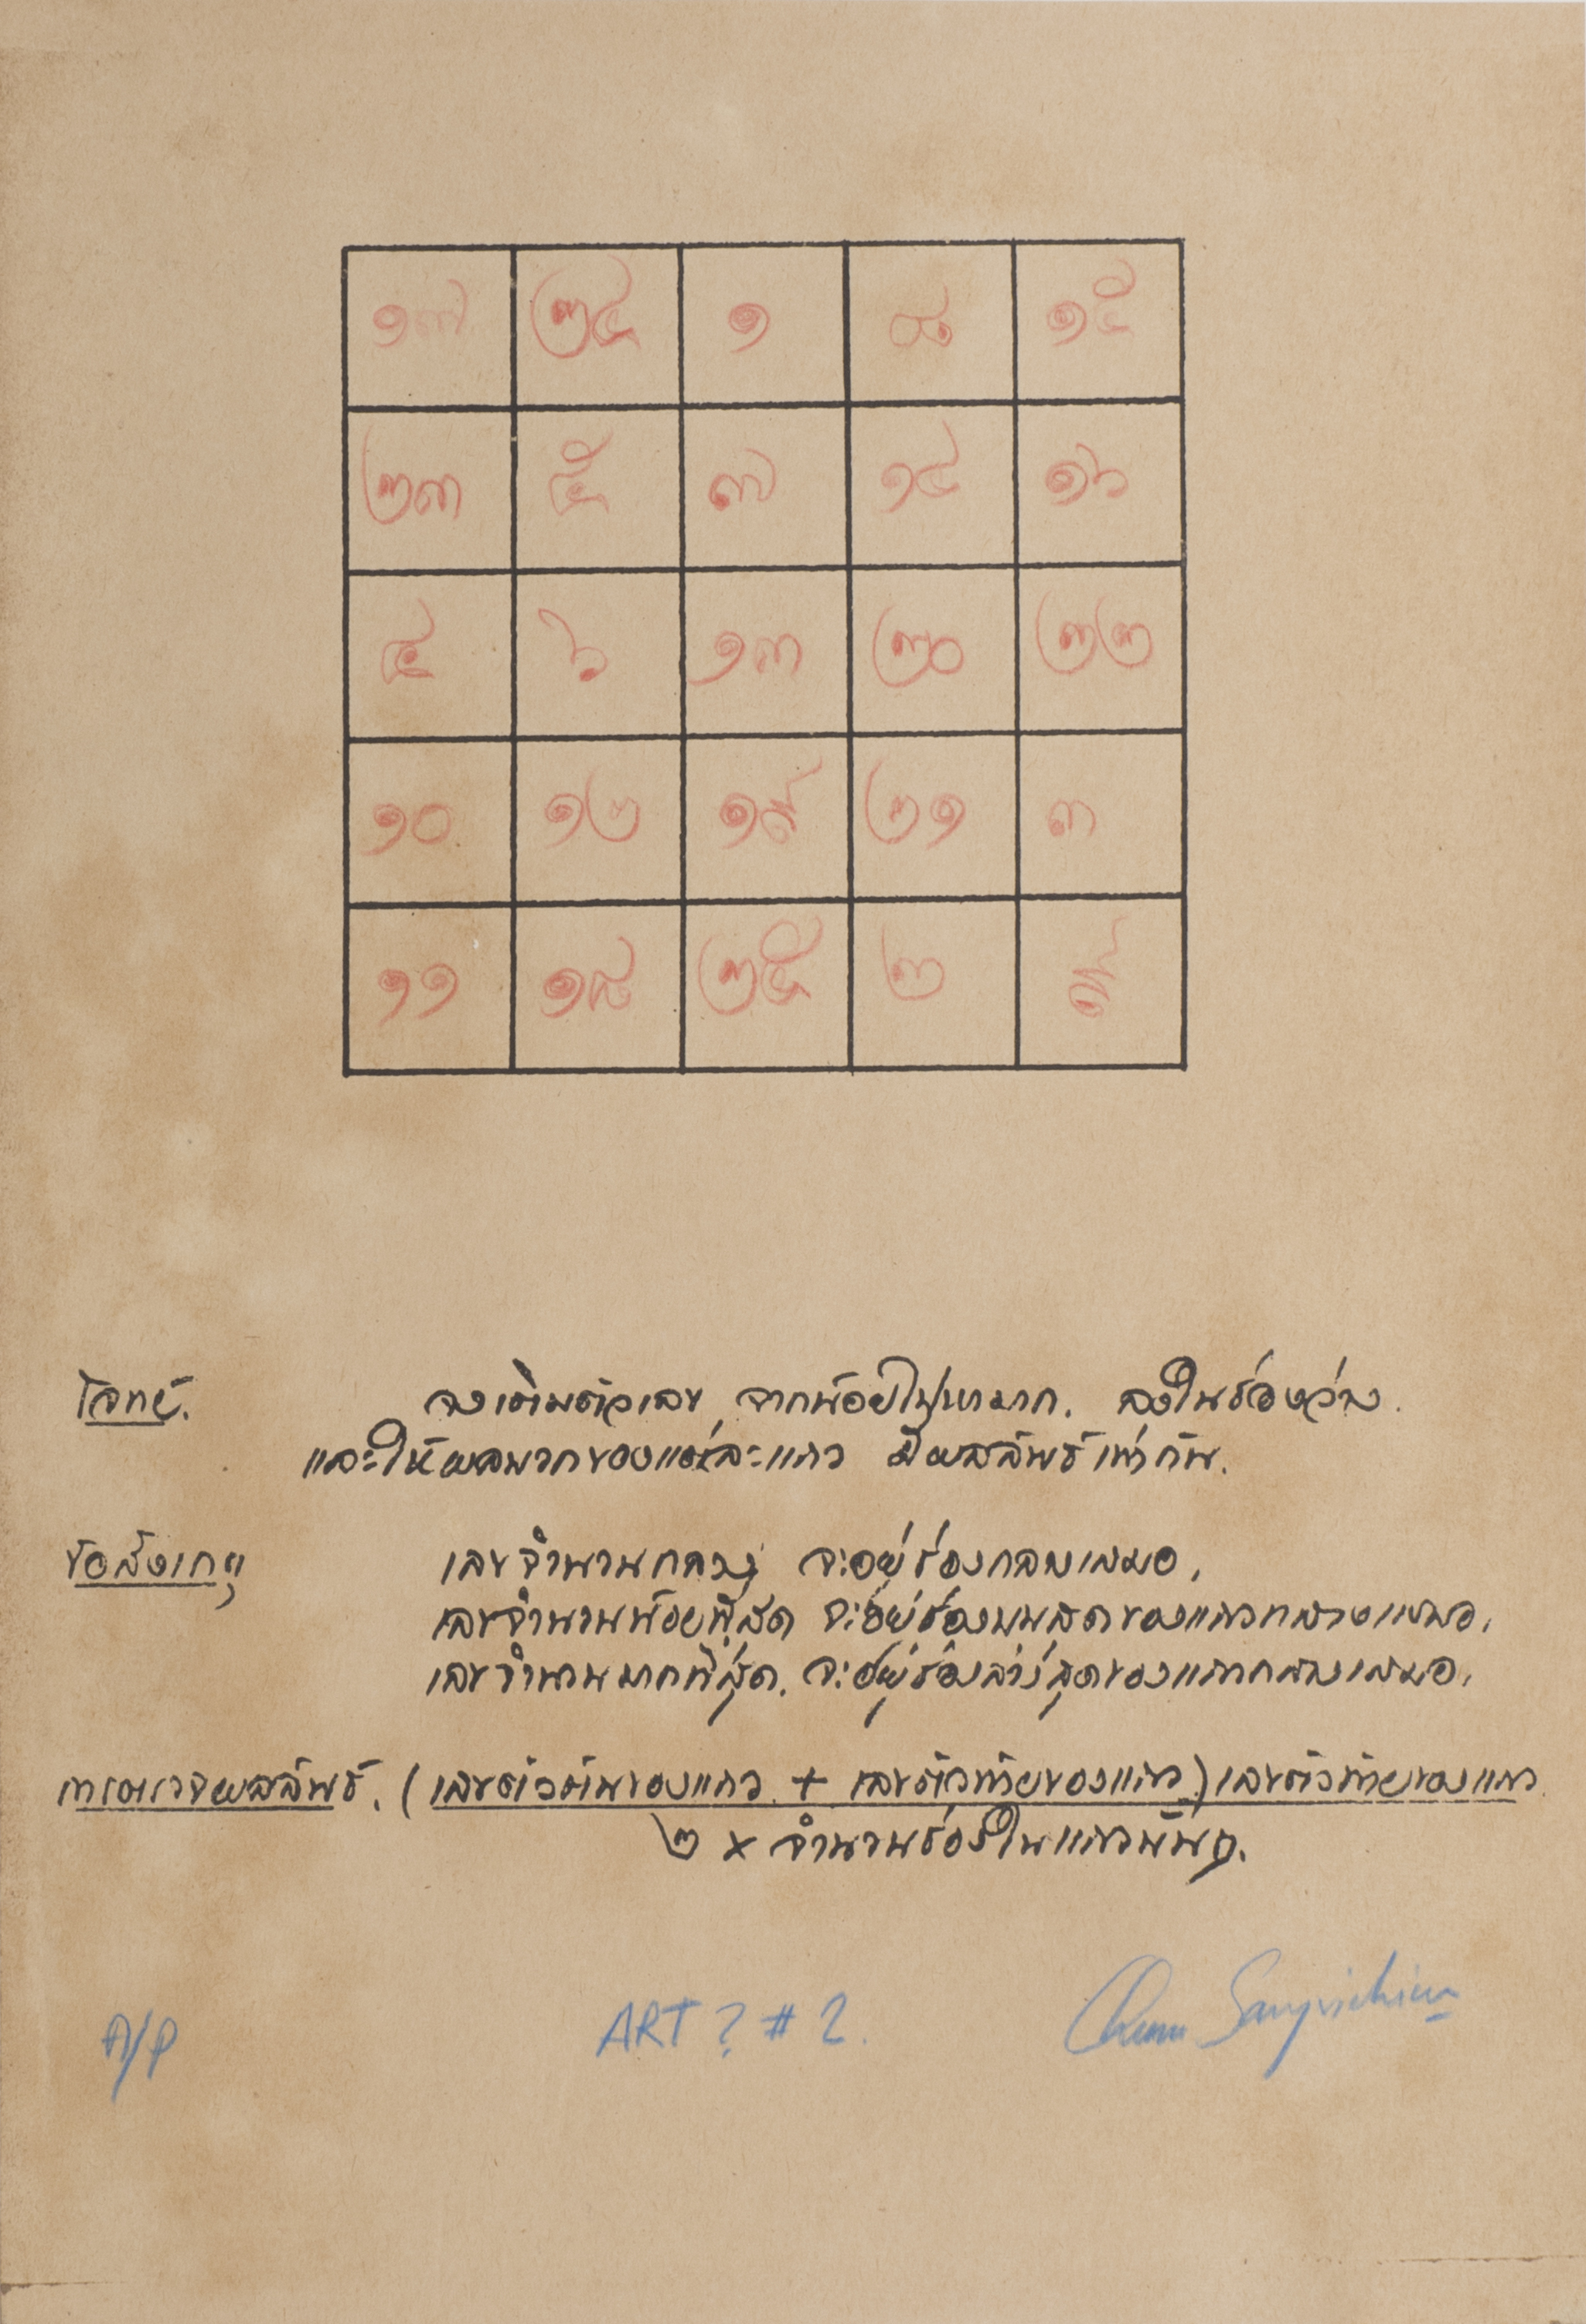 ๑๗ ๒๔ ๑ ๘ ๑๕
๒๓ ๕ ๗ ๑๔ ๑๖
๔ ๖ ๑๓ ๒๐ ๒๒
๑๐ ๑๒ ๑๙ ๒๑ ๓
๑๑ ๑๘ ๒๕ ๒ ๙
โจทย์. จงเติมตัวเลข จากน้อยไปหามาก. ลงในช่องว่าง.
และให้ผลบวกของแต่ละแถว มีผลลัพธ์เท่ากัน.
ข้อสังเกตุ เลขจำนวนกลาง จะอยู่ช่องกลางเสมอ,
เลขจำนวนน้อยที่สุด จะอยู่ช่องบนสุดของแถวกลางเสมอ,
เลขจำนวนมากที่สุด. จะอยู่ช่องล่างสุดของแถวกลางเสมอ,
การตรวจผลลัพธ์. (เลขตัวต้นของแถว + เลขตัวท้ายของแถว) เลขตัวท้ายของแถว
๒ x จำนวนช่องในแถวนั้นๆ.
A/P ART ? # 2.